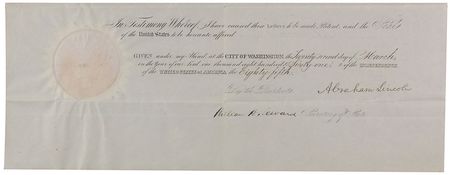 In Testimony Whereof, I have caused these Letters to be made Patent, and the Seal
of the United States to be hereunto affixed.
GIVEN under my Hand, at the CITY OF WASHINGTON, the Twenty second day of March,
in the Year of our Lord one thousand eight hundred Sixty one, & of the INDEPENDENCE
of the UNITED STATES OF AMERICA, the Eighty fifth.
By the President
Abraham Lincoln
William H. Seward Secretary of State